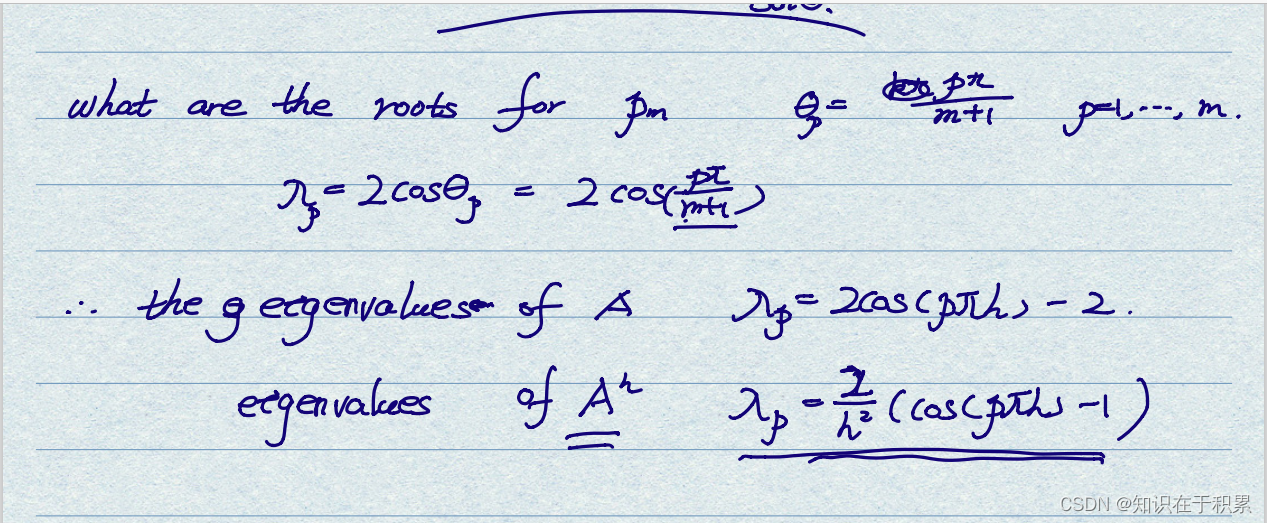 what are the roots for pm θp = pπ/(m+1) p=1, ..., m.
λp = 2cosθp = 2cos(pπ/(m+1))
∴ the eigenvalues of A λp = 2cos(pπh) - 2.
eigenvalues of A^h λp = 2/h² (cos(pπh) - 1)
CSDN @知识在于积累